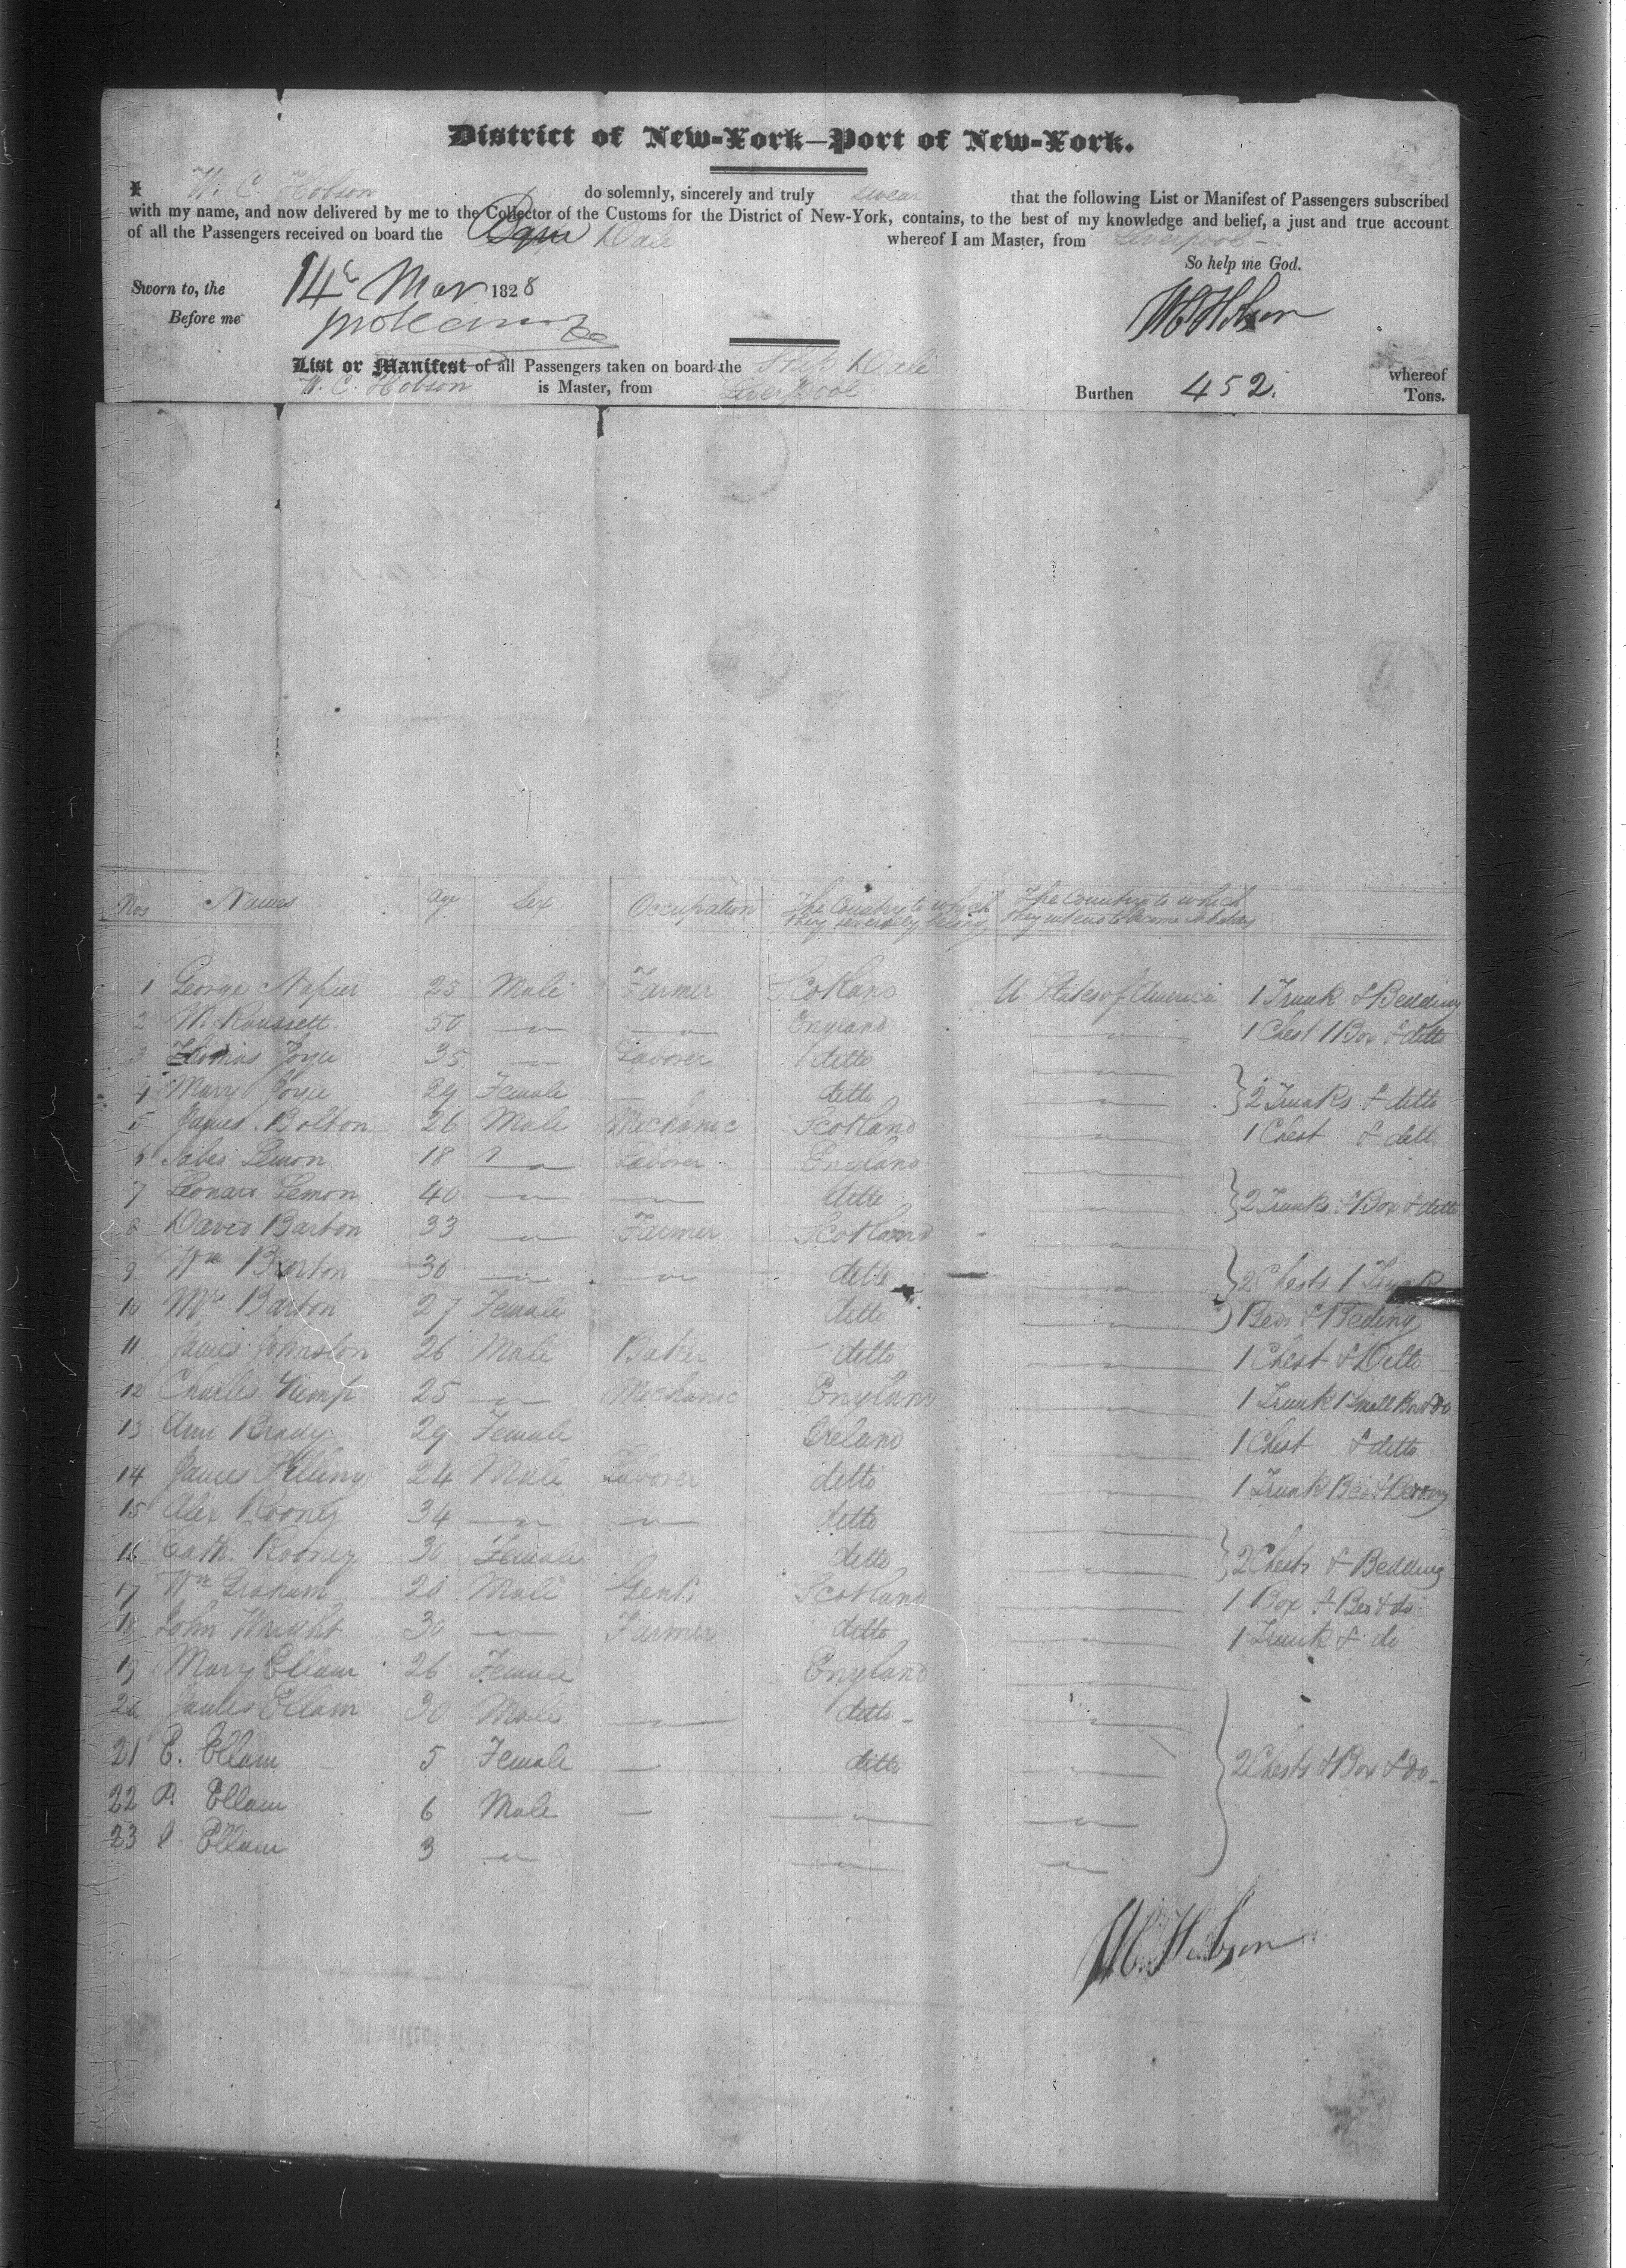 District of New-York—Port of New-York.
I W. C. Hobson do solemnly, sincerely and truly swear that the following List or Manifest of Passengers subscribed
with my name, and now delivered by me to the Collector of the Customs for the District of New-York, contains, to the best of my knowledge and belief, a just and true account
of all the Passengers received on board the Dale whereof I am Master, from Liverpool
So help me God.
Sworn to, the 14th Mar 1828
Before me
W C Hobson
List or Manifest of all Passengers taken on board the Ship Dale whereof
W. C. Hobson is Master, from Liverpool Burthen 452. Tons.
Nos Names Age Sex Occupation The Country to which they severally belong The Country to which they intend to become inhabitants
1 George Napier 25 Male Farmer Scotland U. States of America 1 Trunk & Bedding
2 M. Roussett 50 — " — — " — England — " — 1 Chest 1 Box & ditto
3 Thomas Joyce 35 — " — Laborer ditto — " —
4 Mary Joyce 29 Female — ditto — " — 2 Trunks & ditto
5 James Bolton 26 Male Mechanic Scotland — " — 1 Chest & ditt
6 Jabes Lemon 18 — " — Laborer England — " —
7 Leonard Lemon 40 — " — — " — ditto — " — 2 Trunks & Box & ditto
8 David Barton 33 — " — Farmer Scotland — " —
9 Wm Barton 30 — " — — " — ditto — " — 2 Chests 1 Trunk
10 Mrs Barton 27 Female ditto — " — Beds & Beding
11 James Johnston 26 Male Baker ditto — " — 1 Chest & Ditto
12 Charles Kemp 25 — " — Mechanic England — " — 1 Trunk 1 Small Box & do
13 Ann Brady 29 Female Ireland — " — 1 Chest & ditto
14 James 24 Male Laborer ditto — " — 1 Trunk Bed & Bedding
15 Alex Rooney 34 — " — — " — ditto — " —
16 Cath. Rooney 30 Female ditto — " — 2 Chests & Bedding
17 Wm Graham 20 Male Gent. Scotland — " — 1 Box & Bed & do
18 John Wright 30 — " — Farmer ditto — " — 1 Trunk & do
19 Mary Ellam 26 Female England — " —
20 James Ellam 30 Male — " — ditto — " —
21 E. Ellam 5 Female — ditto — " — 2 Chests & Box & do
22 P. Ellam 6 Male — — " — — " —
23 Ellam 3 — " — — " — — " —
W C Hobson